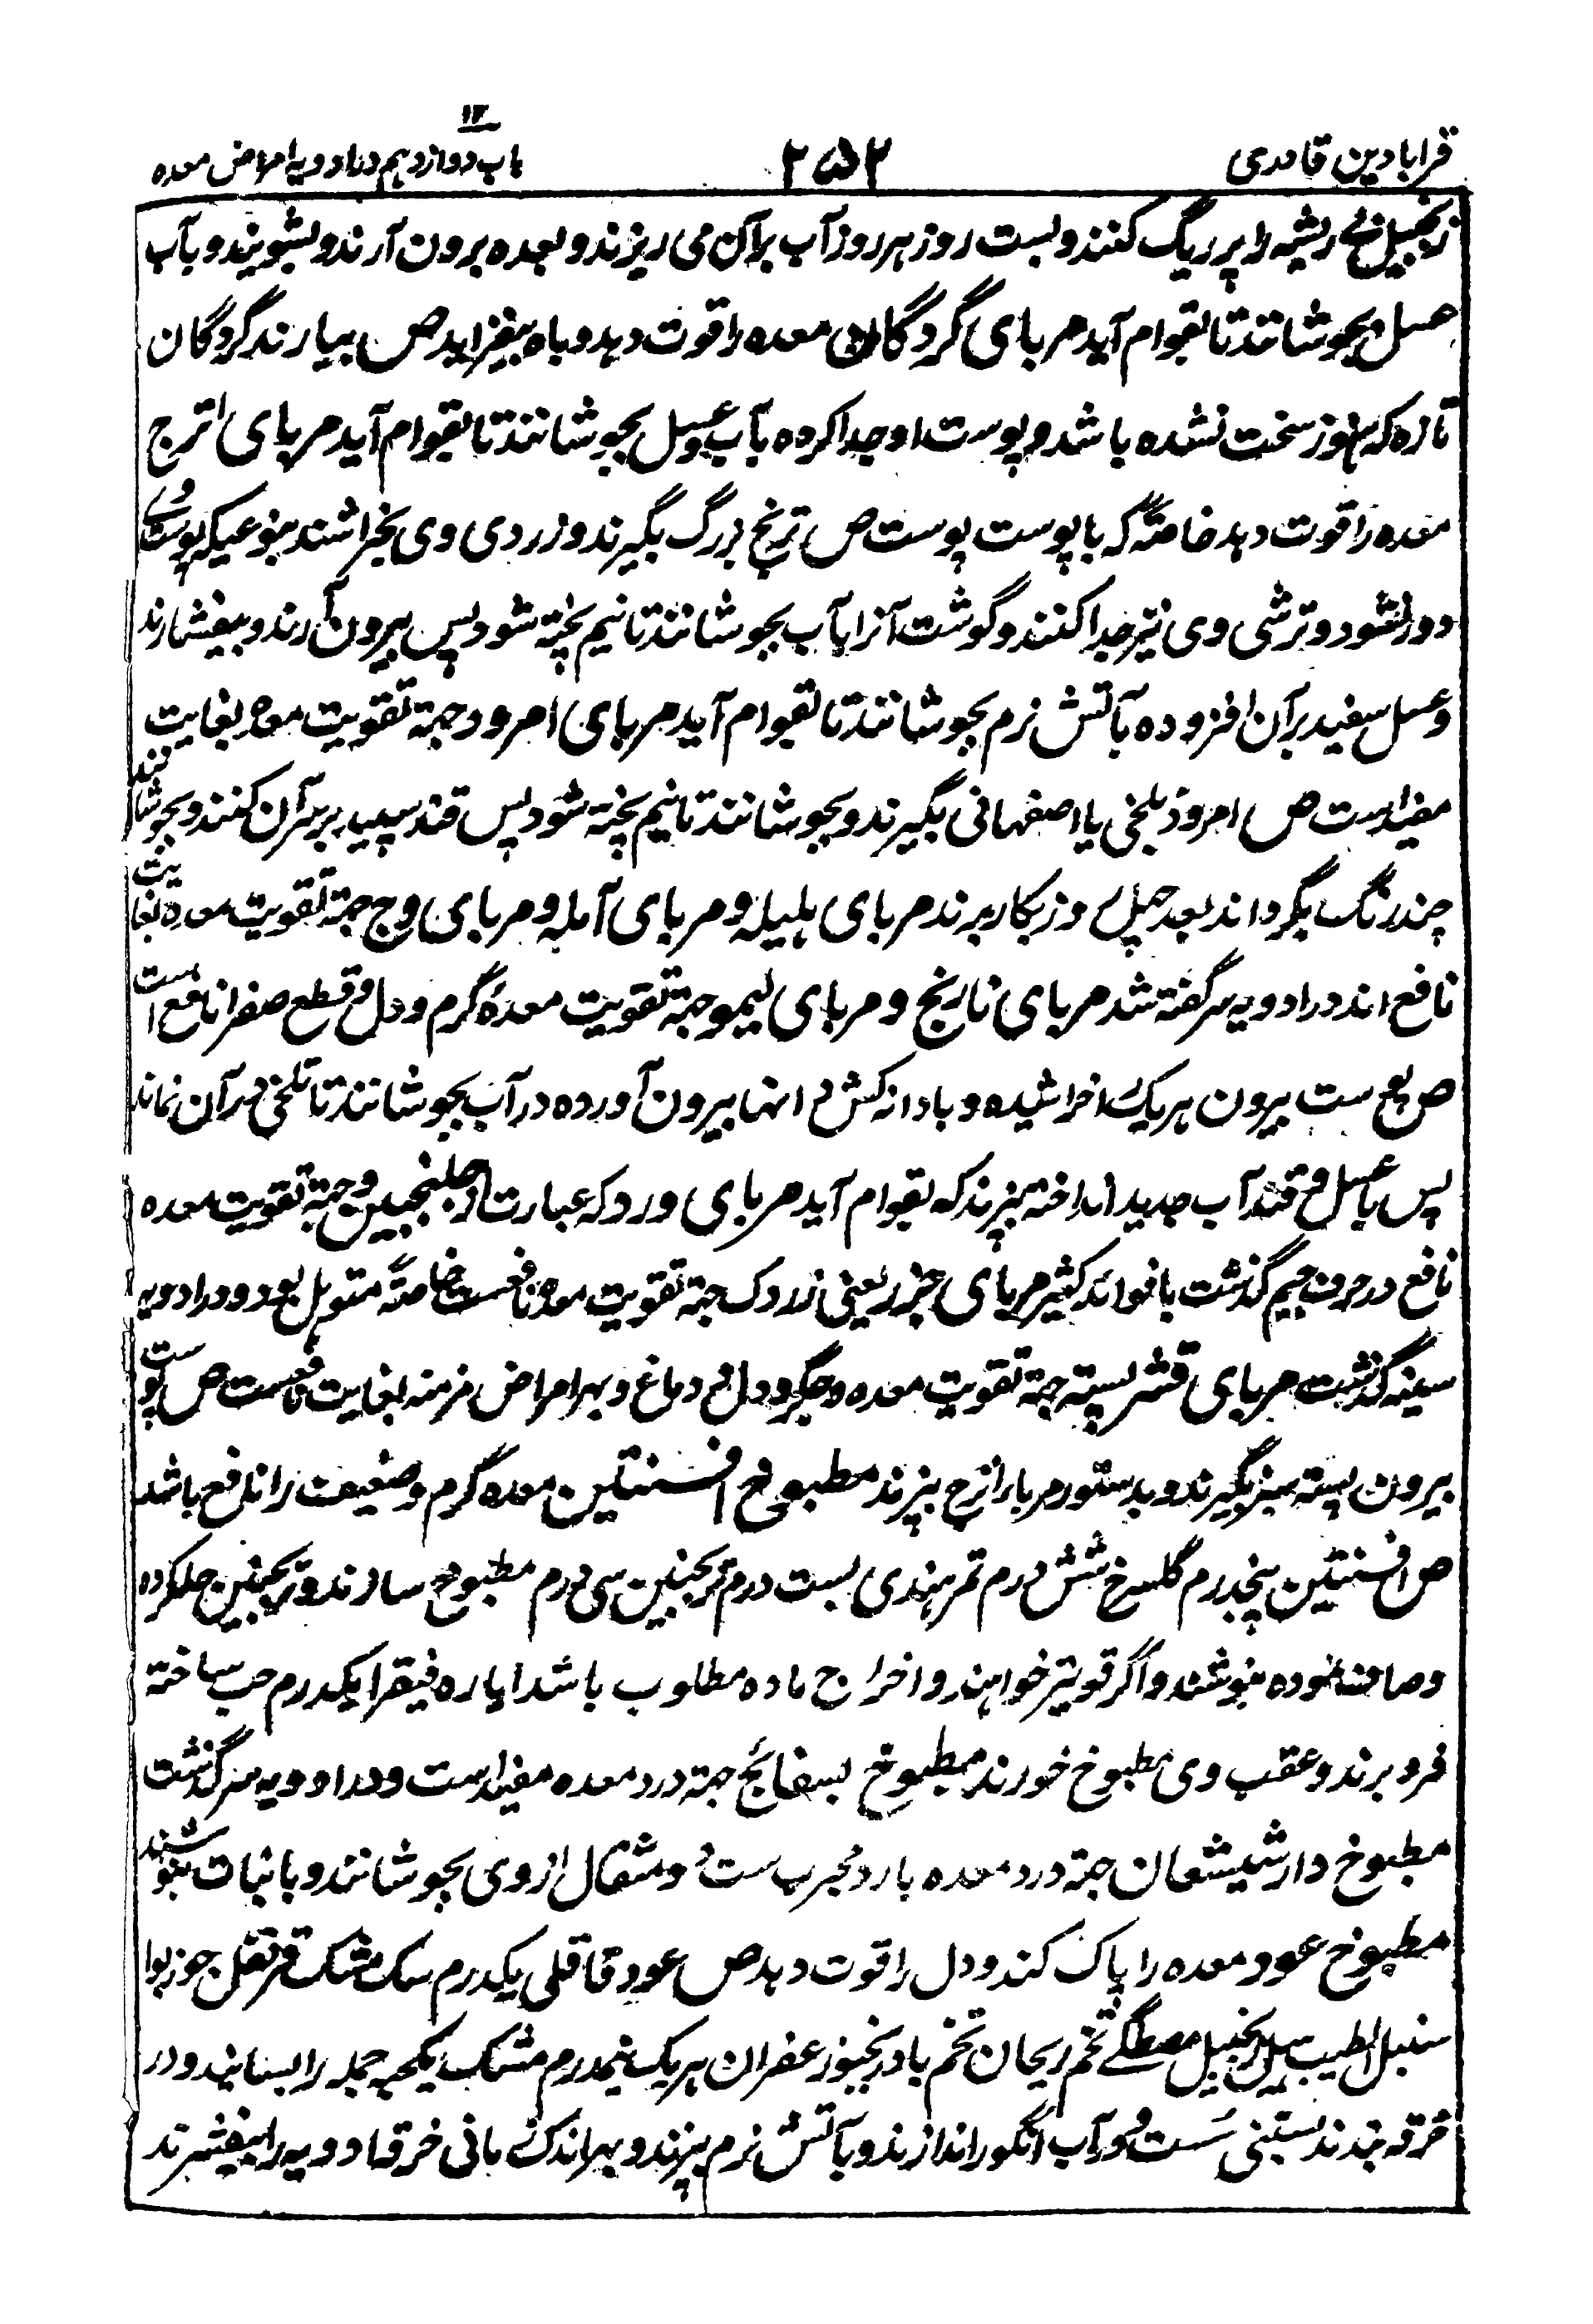 ۱۲
قرابادین قادری ۲۵۲ باب دوازدهم در ادویه امراض معده
زنجبیل بی ریشه را پر ریگ کنند و بست روز هر روز آب بر آن می ریزند و بعده برون آرند و بشویند و بآب
عسل بجوشانند تا بقوام آید مربای گردگان معده را قوت دهد و باه بیفزاید ص بیارند گردگان
تازه که هنوز سخت نشده باشد و پوست او جدا کرده بآب و عسل بجوشانند تا بقوام آید مربای اترج
معده را قوت دهد خاصّه که با پوست پوست ص ترنج بزرگ بگیرند و زردی وی بخراشند بنوعیکه پوست وی
دور نشود و ترشی وی نیز جدا کنند و گوشت آنرا بآب بجوشانند تا نیم پخته شود پس بیرون آرند و بیفشارند
و عسل سفید بر آن افزوده بآتش نرم بجوشانند تا بقوام آید مربای امرود جهة تقویت معده بغایت
مفید است ص امرود بلخی یا اصفهانی بگیرند و بجوشانند تا نیم پخته شود پس قند سپید بر سر آن کنند و بجوشانند
چند رنگ بگرداند بعد چهل روز بکار برند مربای هلیله و مربای آمله و مربای وج جهة تقویت معده بغایت
نافع اند در ادویه سر گفته شد مربای نارنج و مربای لیمو جهة تقویت معدهٔ گرم و دل و قطع صفرا نافع است
ص بع ست بیرون هر یک را خراشیده و بادانه کش دانها بیرون آورده در آب بجوشانند تا تلخی در آن نماند
پس با عسل و قند آب جدید انداخته بپزند که بقوام آید مربای ورد که عبارت از جلنجبین و جهة تقویت معده
نافع در حرف جیم گذشت با فوائد کثیر مربای جزر یعنی زردک جهة تقویت معده نافعست خاصّه متوبل بود و در ادویه
سینه گذشت مربای قشر پسته جهة تقویت معده و جگر و دل و دماغ و بهر امراض مزمنه بغایت نافعست ص پوست
بیرون پسته سبز بگیرند و بدستور مربا را ترج بپزند مطبوخ افسنتین معده گرم و ضعیف را نافع باشد
ص افسنتین پنجدرم گلسرخ شش درم تمر هندی بست درم ترنجبین سی درم مطبوخ سازند و ترنجبین حلکرده
و صاف نموده بنوشند و اگر قویتر خواهند و اخراج ماده مطلوب باشد ایاره فیقرا یکدرم حب ساخته
فرو برند و عقب وی مطبوخ خورند مطبوخ بسفائج جهة درد معده مفید است و در ادویه سر گذشت
مطبوخ دارشیشعان جهة درد معده بارد مجرب ست دو مثقال از وی بجوشانند و با نبات بنوشند
مطبوخ عود معده را پاک کند و دل را قوت دهد ص عود قاقلی یکدرم سک مشک قرنفل جوز بوا
سنبل الطیب هیل زنجبیل مصطگی تخم ریحان تخم بادرنجبو زعفران هر یک نیمدرم مشک یکحبه جمله را بسایند و در
خرقه بندند بستنی سست و در آب انگور اندازند و بآتش نرم بپزند و بهر اندک زمانی خرقه ادویه را بیفشرند